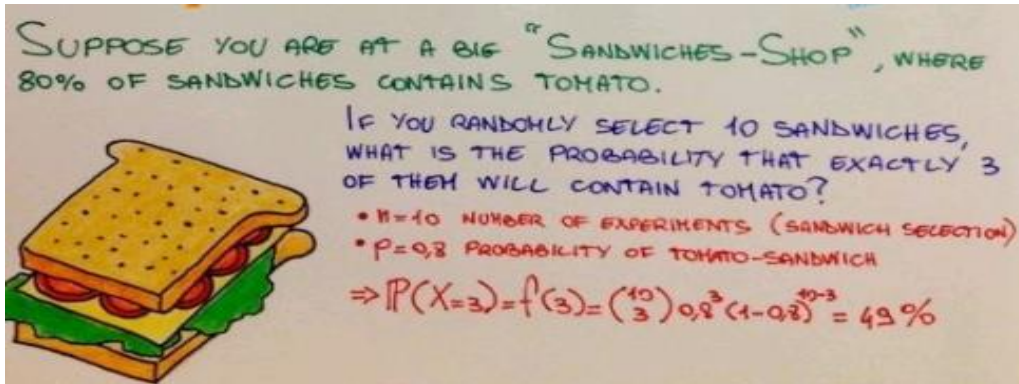 SUPPOSE YOU ARE AT A BIG "SANDWICHES-SHOP", WHERE
80% OF SANDWICHES CONTAINS TOMATO.
IF YOU RANDOMLY SELECT 10 SANDWICHES,
WHAT IS THE PROBABILITY THAT EXACTLY 3
OF THEM WILL CONTAIN TOMATO?
• n=10 NUMBER OF EXPERIMENTS (SANDWICH SELECTION)
• p=0,8 PROBABILITY OF TOMATO-SANDWICH
⇒ ℙ(X=3)=f(3)=(10 3) 0,8³ (1-0,8)¹⁰⁻³ = 49%